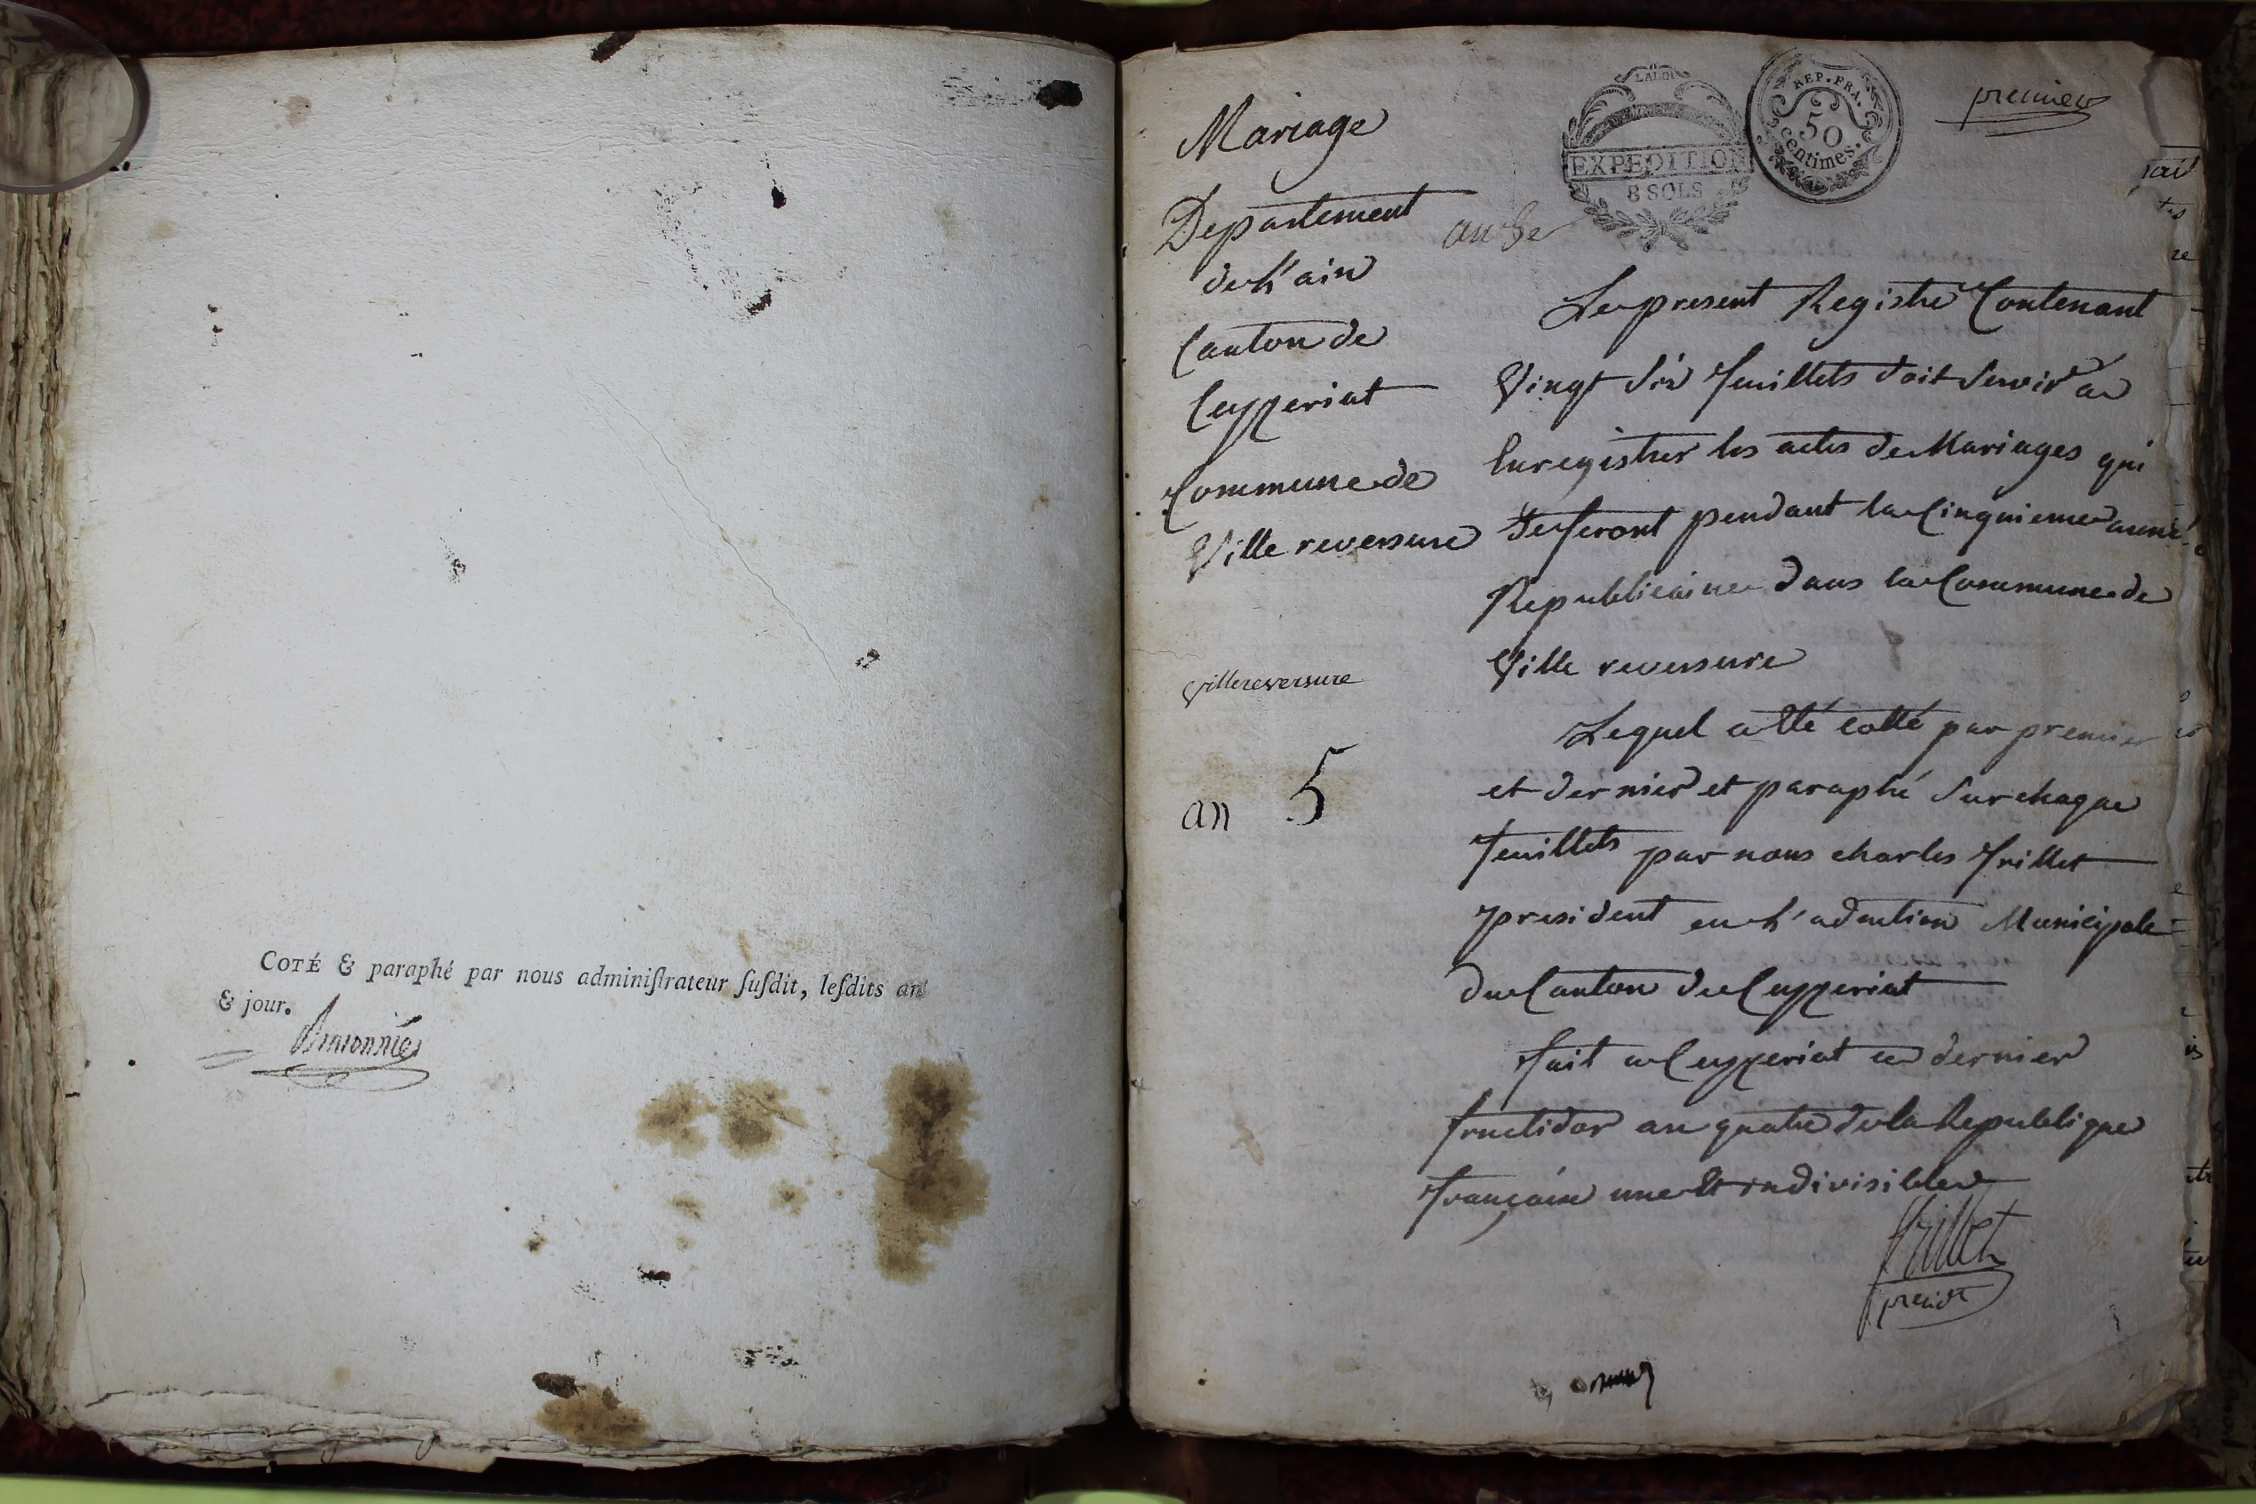 COTÉ & paraphé par nous adminiſtrateur ſuſdit, leſdits an
& jour.
Mariage
Departement
de L'ain
Canton de
Ceyzeriat
Commune de
Ville reversure
villereversure
an 5
LA LOI
EXPÉDITION
8 SOLS
REP. FRA.
50
centimes.
premier
an 5e
Le present Registre Contenant
Vingt Six feuillets doit Servir a
Enregistrer les actes de Mariages qui
Se feront pendant la Cinquieme année
Republicaine dans la Commune de
Ville reversure
Lequel a été cotté par premier
et dernier et paraphé Sur chaque
feuillets par nous charles frillet
president en L'adm̄tion Municipale
du Canton de Ceyzeriat
fait a Ceyzeriat ce dernier
fructidor an quatre de la Republique
françaire une Et indivisible
frillet
presidt